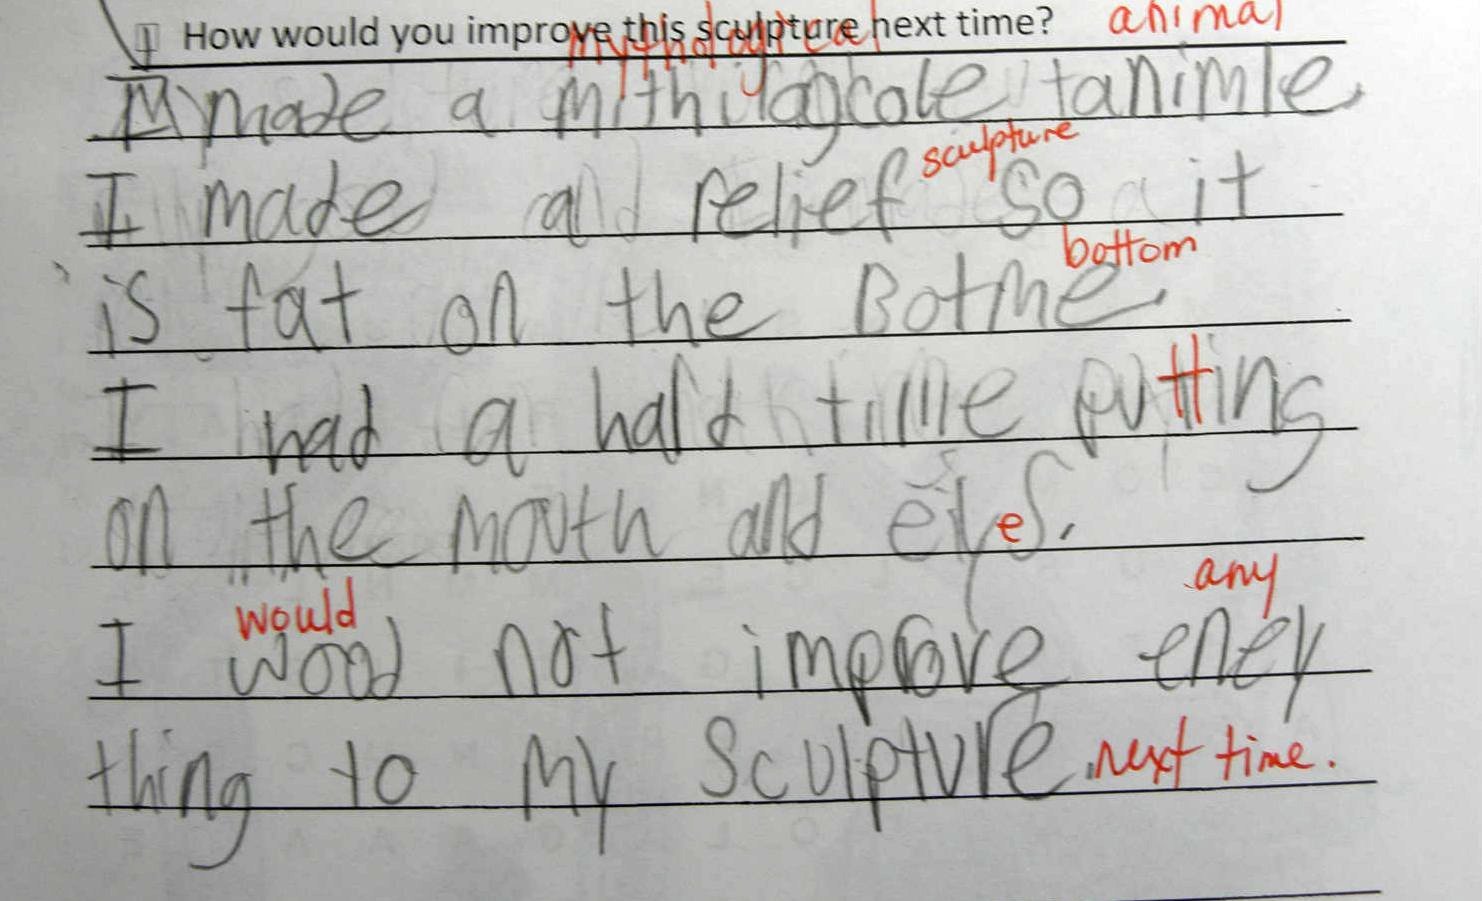 How would you improve this sculpture next time? animal
mythological
I made a mithilagcole tanimle.
sculpture
I made a relief so it
bottom
is fat on the Botme.
I had a hard time putting
on the mouth and eyes.
would any
I wood not improve eney
thing to my Sculpture. next time.